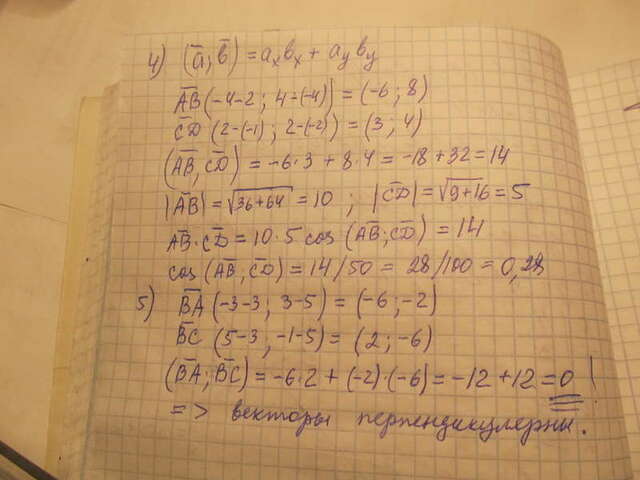 4) (a̅; b̅) = aₓbₓ + aᵧbᵧ
A̅B̅ (-4-2; 4-(-4)) = (-6; 8)
C̅D̅ (2-(-1); 2-(-2)) = (3; 4)
(A̅B̅, C̅D̅) = -6·3 + 8·4 = -18+32 = 14
|A̅B̅| = √36+64 = 10 ; |C̅D̅| = √9+16 = 5
A̅B̅·C̅D̅ = 10·5 cos (A̅B̅; C̅D̅) = 14
cos (A̅B̅, C̅D̅) = 14/50 = 28/100 = 0,28
5) B̅A̅ (-3-3; 3-5) = (-6; -2)
B̅C̅ (5-3; -1-5) = (2; -6)
(B̅A̅; B̅C̅) = -6·2 + (-2)·(-6) = -12+12 = 0 !
=> векторы перпендикулярны.